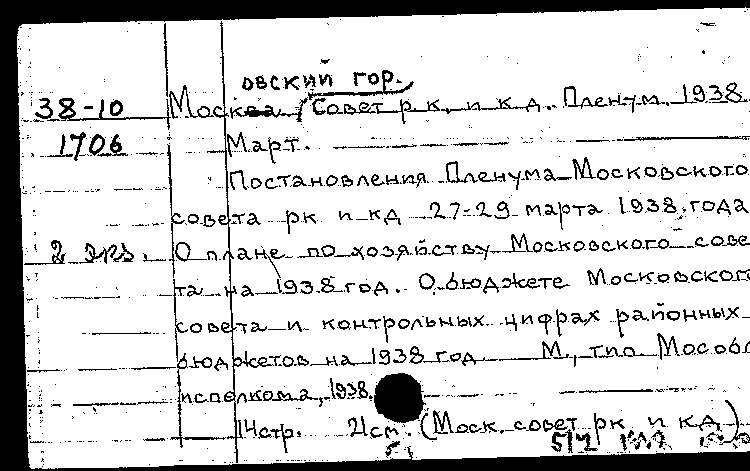 овский гор.
38-10 Москва. (Совет р к. и к д. Пленум. 1938
1706 Март.
Постановления Пленума Московского
совета рк и кд 27-29 марта 1938 года
2 экз. О плане по хозяйству Московского сове-
та на 1938 год. О бюджете Московског
совета и контрольных цифрах районных
бюджетов на 1938 год М., тип. Мособл
исполкома, 1938.
14стр. 21см. (Моск. совет рк и кд)